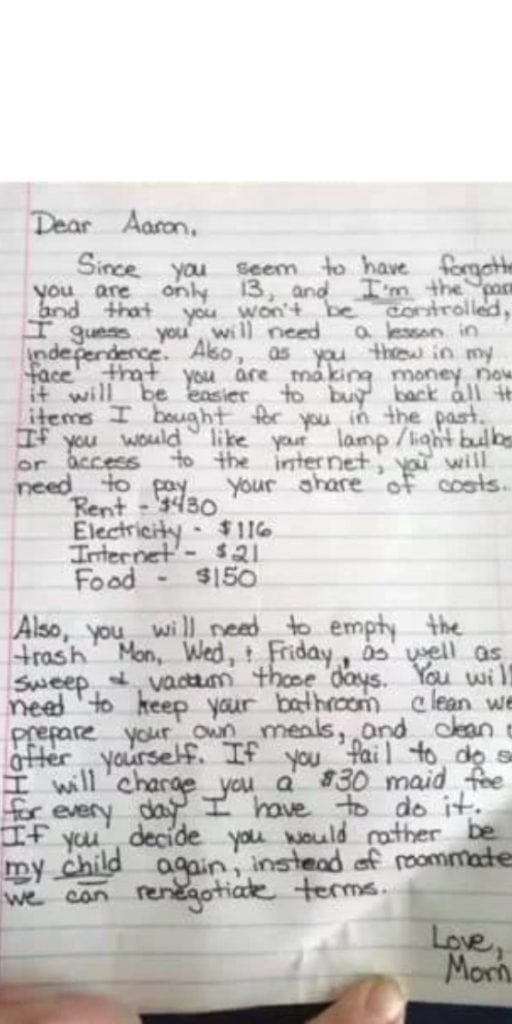 Dear Aaron,
Since you seem to have forgotte
you are only 13, and I'm the par
and that you won't be controlled,
I guess you will need a lesson in
independence. Also, as you threw in my
face that you are making money now
it will be easier to buy back all th
items I bought for you in the past.
If you would like your lamp/lightbulbs
or access to the internet, you will
need to pay your share of costs.
Rent - $430
Electricity - $116
Internet - $21
Food - $150
Also, you will need to empty the
trash Mon, Wed, + Friday, as well as
sweep & vacuum those days. You will
need to keep your bathroom clean we
prepare your own meals, and clean
after yourself. If you fail to do so
I will charge you a $30 maid fee
for every day I have to do it.
If you decide you would rather be
my child again, instead of roommate
we can renegotiate terms.
Love,
Mom